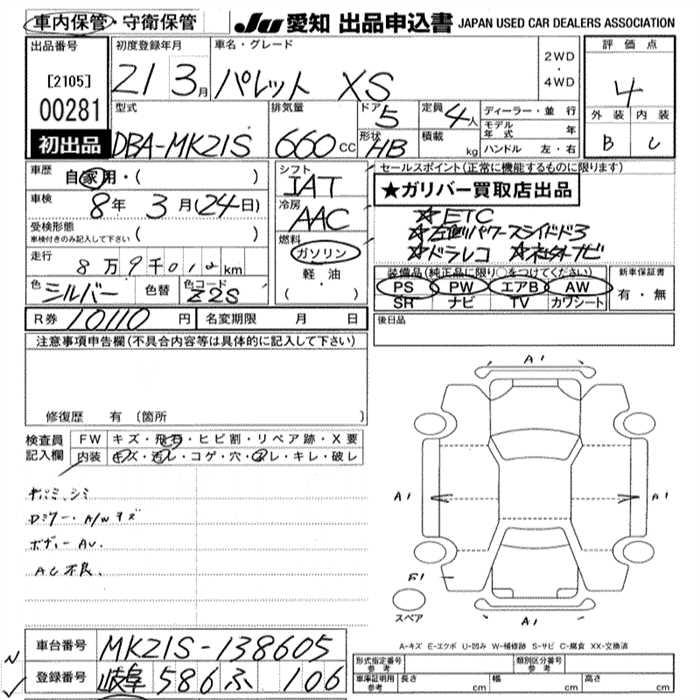 車内保管・守衛保管
JU 愛知 出品申込書 JAPAN USED CAR DEALERS ASSOCIATION
出品番号
[2105]
00281
初出品
初度登録年月
21 3月
車名・グレード
パレット XS
2WD
・
4WD
評価点
4
外装 内装
B C
型式
DBA-MK21S
排気量
660cc
ドア
5
形状
HB
定員
4人
積載
kg
ディーラー・並行
モデル年式 年
ハンドル 左・右
車歴
自家用・( )
車検
8年 3月(24日)
受検形態
車検付きのみ記入して下さい ( )
走行
8万9千012km
色
シルバー
色替
色コード
Z2S
シフト
IAT
冷房
AAC
燃料
ガソリン
・
軽・油
( )
セールスポイント(正常に機能するものに限ります)
★ガリバー買取店出品
☆ETC
☆左側パワースライドドア
☆ドラレコ ☆社外ナビ
装備品(純正品に限り○をつけてください)
PS PW エアB AW
SR ナビ TV カワシート
新車保証書
有・無
R券 10110円
名変期限 月 日
後日品
注意事項申告欄(不具合内容等は具体的に記入して下さい)
修復歴 有 (箇所 )
検査員記入欄
FW キズ・飛石・ヒビ割・リペア跡・X要
内装 キズ・汚レ・コゲ・穴・スレ・キレ・破レ
キバミ、シミ
Dミラー・A/Wキズ
ボディーAU.
AC不良.
A1
A1
A1
E1
A1
スペア
A-キズ E-エクボ U-凹み W-補修跡 S-サビ C-腐食 XX-交換済
車台番号 MK21S-138605
登録番号 岐阜 586 ふ 106
形式指定番号 参考
類別区分番号 参考
車庫証明用 参考 長さ cm 幅 cm 高さ cm